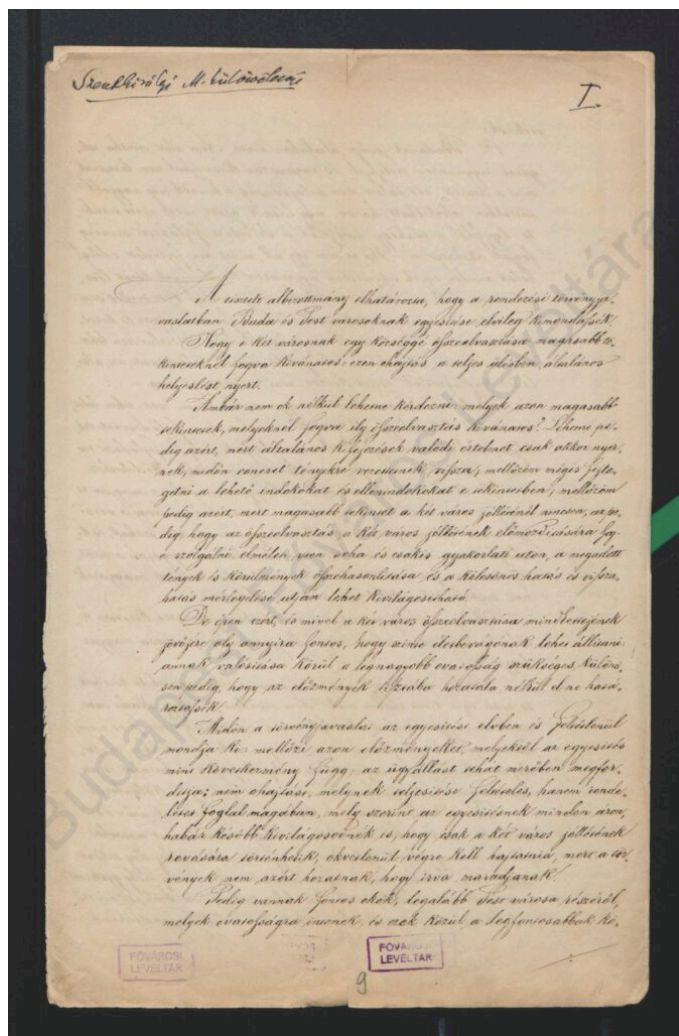 Szentkirályi M. különvélemé
I.
A tisztelt albizottmány elhatározta, hogy a rendezési törvényja-
vaslatban Buda és Pest városoknak egyesitése elvileg kimondassék.
Hogy e két városnak egy községgé összeolvasztása magasabb te-
kinteteknél fogva kivánatos: ezen ohajtás a teljes ülésben általános
helyeslést nyert.
Ámbár nem ok nélkül lehetne kérdezni: melyek azon magasabb
tekintetek, melyeknél fogva ily összeolvasztás kivánatos? Lehetne pe-
dig azért, mert általános kifejezések valódi értelmet csak akkor nyer-
nek, midőn concret tényekre vezettetnek vissza; mellőzöm mégis fejte-
getni a lehető indokokat és ellenindokokat e tekintetben; mellőzöm
pedig azért, mert magasabb tekintet a két város jólléténél nincsen, az pe-
dig, hogy az összeolvasztás a két város jóllétének előmozditására fog-
e szolgálni, elméleti uton soha és csakis gyakorlati uton, a megadott
tények és körülmények összehasonlitása és a kölcsönös hatás és vissza-
hatás mérlegelése utján lehet kivilágositható.
De épen ezért, is mivel a két város összeolvasztása mindkettejének
jövőjére oly annyira fontos, hogy szinte életbevágónak lehet állitani:
annak valósitása körül a legnagyobb ovatosság szükséges, különö-
sen pedig, hogy az előzmények tisztába hozatala nélkül el ne hatá-
roztassék.
Midőn a törvényjavaslat az egyesitést elvben és feltétlenül
mondja ki: mellőzi azon előzményeket, melyektől az egyesités
mint következmény függ; az ügyállást tehát merőben megfor-
ditja; nem ohajtást, melynek teljesitése feltételes, hanem rende-
letet foglal magában, mely szerint az egyesitésnek minden áron,
habár később kivilágosodnék is, hogy csak a két város jóllétének
rovására történhetik, okvetlenül végre kell hajtatnia, mert a tör-
vények nem azért hozatnak, hogy irva maradjanak.
Pedig vannak fontos okok, legalább Pest városa részéről,
melyek ovatosságra intenek, és ezek közül a legfontosabbak kö-
FŐVÁROSI
LEVÉLTÁR
FŐVÁROSI
LEVÉLTÁR
9
Budapest Főváros Levéltára